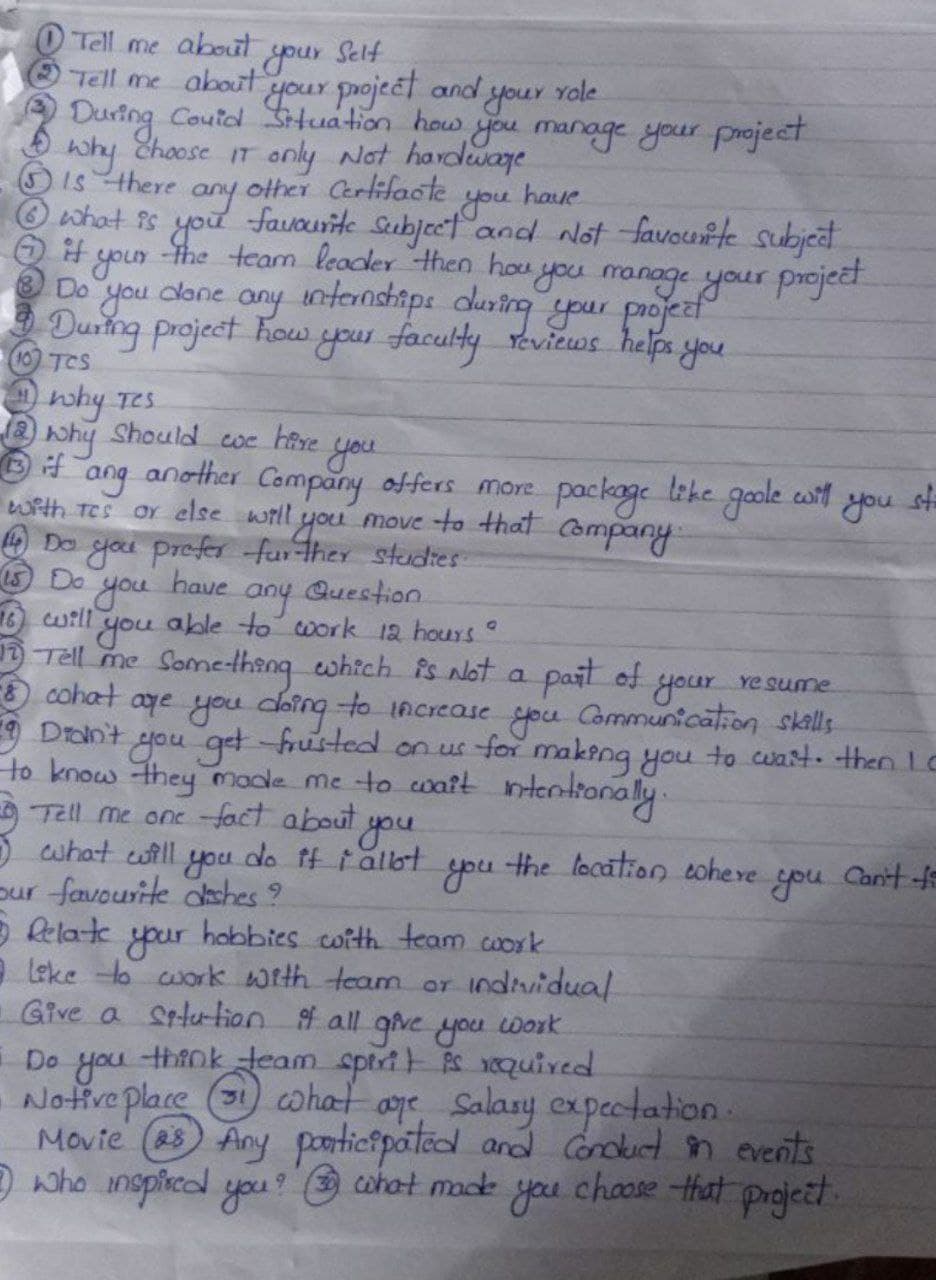 ① Tell me about your Self
② Tell me about your project and your role
③ During Couid Situation how you manage your project
④ why choose IT only Not hardware
⑤ Is there any other Certifacte you have
⑥ what is you favourite Subject and Not favourite subject
⑦ if your the team leader then hou you manage your project
⑧ Do you done any internships during your project
⑨ During project how your faculty reviews helps you
⑩ TCS
⑪ why TCS
⑫ why Should we hire you
⑬ if ang another Company offers more package like goole will you
with TCS or else will you move to that Company.
⑭ Do you prefer further studies.
⑮ Do you have any Question
⑯ will you able to work 12 hours
⑰ Tell me Something which is Not a part of your resume
8 what are you doing to increase you Communication skills
9 Didn't you get frusted on us for making you to wait. then I
to know they made me to wait intentionally.
Tell me one fact about you
what will you do if i allot you the location where you Can't
our favourite dishes?
Relate your hobbies with team work
like to work with team or individual
Give a Sitution if all give you work
Do you think team spirit is required
Notive place ㉛ what are Salary expectation.
Movie ㉘ Any participated and Conduct in events
who inspired you? ㉚ what made you choose that project.